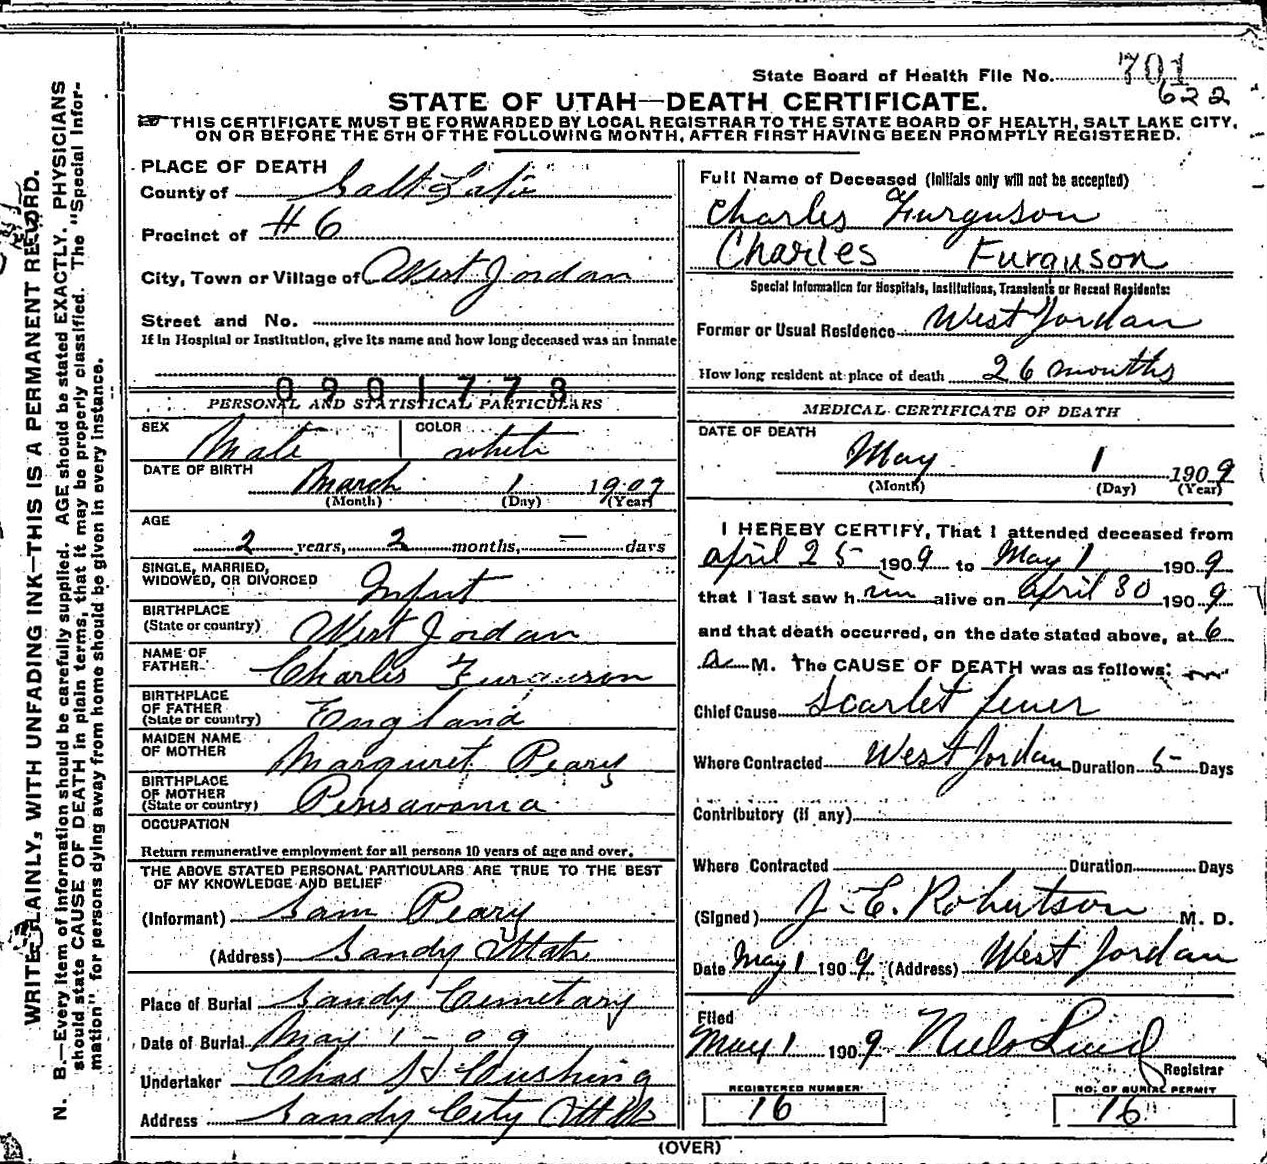 State Board of Health File No. 701
622
STATE OF UTAH—DEATH CERTIFICATE.
THIS CERTIFICATE MUST BE FORWARDED BY LOCAL REGISTRAR TO THE STATE BOARD OF HEALTH, SALT LAKE CITY,
ON OR BEFORE THE 5TH OF THE FOLLOWING MONTH, AFTER FIRST HAVING BEEN PROMPTLY REGISTERED.
WRITE PLAINLY, WITH UNFADING INK—THIS IS A PERMANENT RECORD.
N. B.—Every item of information should be carefully supplied. AGE should be stated EXACTLY. PHYSICIANS
should state CAUSE OF DEATH in plain terms, that it may be properly classified. The "Special Infor-
mation" for persons dying away from home should be given in every instance.
PLACE OF DEATH
County of Salt Lake
Precinct of #6
City, Town or Village of West Jordan
Street and No.
If in Hospital or Institution, give its name and how long deceased was an inmate
0901773
PERSONAL AND STATISTICAL PARTICULARS
SEX Male COLOR white
DATE OF BIRTH March 1 1907
(Month) (Day) (Year)
AGE
2 years, 2 months, — days
SINGLE, MARRIED,
WIDOWED, OR DIVORCED Infant
BIRTHPLACE
(State or country) West Jordan
NAME OF
FATHER Charles Furguson
BIRTHPLACE
OF FATHER
(State or country) England
MAIDEN NAME
OF MOTHER Marguret Peary
BIRTHPLACE
OF MOTHER
(State or country) Pensavania
OCCUPATION
Return remunerative employment for all persons 10 years of age and over.
THE ABOVE STATED PERSONAL PARTICULARS ARE TRUE TO THE BEST
OF MY KNOWLEDGE AND BELIEF
(Informant) Sam Peary
(Address) Sandy Utah
Place of Burial Sandy Cemetary
Date of Burial May 1 - 09
Undertaker Chas H Cushing
Address Sandy City Utah
Full Name of Deceased (Initials only will not be accepted)
Charles Furguson
Charles Furguson
Special Information for Hospitals, Institutions, Transients or Recent Residents:
Former or Usual Residence West Jordan
How long resident at place of death 26 months
MEDICAL CERTIFICATE OF DEATH
DATE OF DEATH
May 1 1909
(Month) (Day) (Year)
I HEREBY CERTIFY, That I attended deceased from
april 25 1909 to May 1 1909
that I last saw him alive on april 30 1909
and that death occurred, on the date stated above, at 6
a M. The CAUSE OF DEATH was as follows:
Chief Cause Scarlet fever
Where Contracted West Jordan Duration 5 Days
Contributory (if any)
Where Contracted Duration Days
(Signed) J. E. Robertson M. D.
Date May 1 1909 (Address) West Jordan
Filed
May 1 1909 Niels Lind
Registrar
REGISTERED NUMBER NO. OF BURIAL PERMIT
16 16
(OVER)